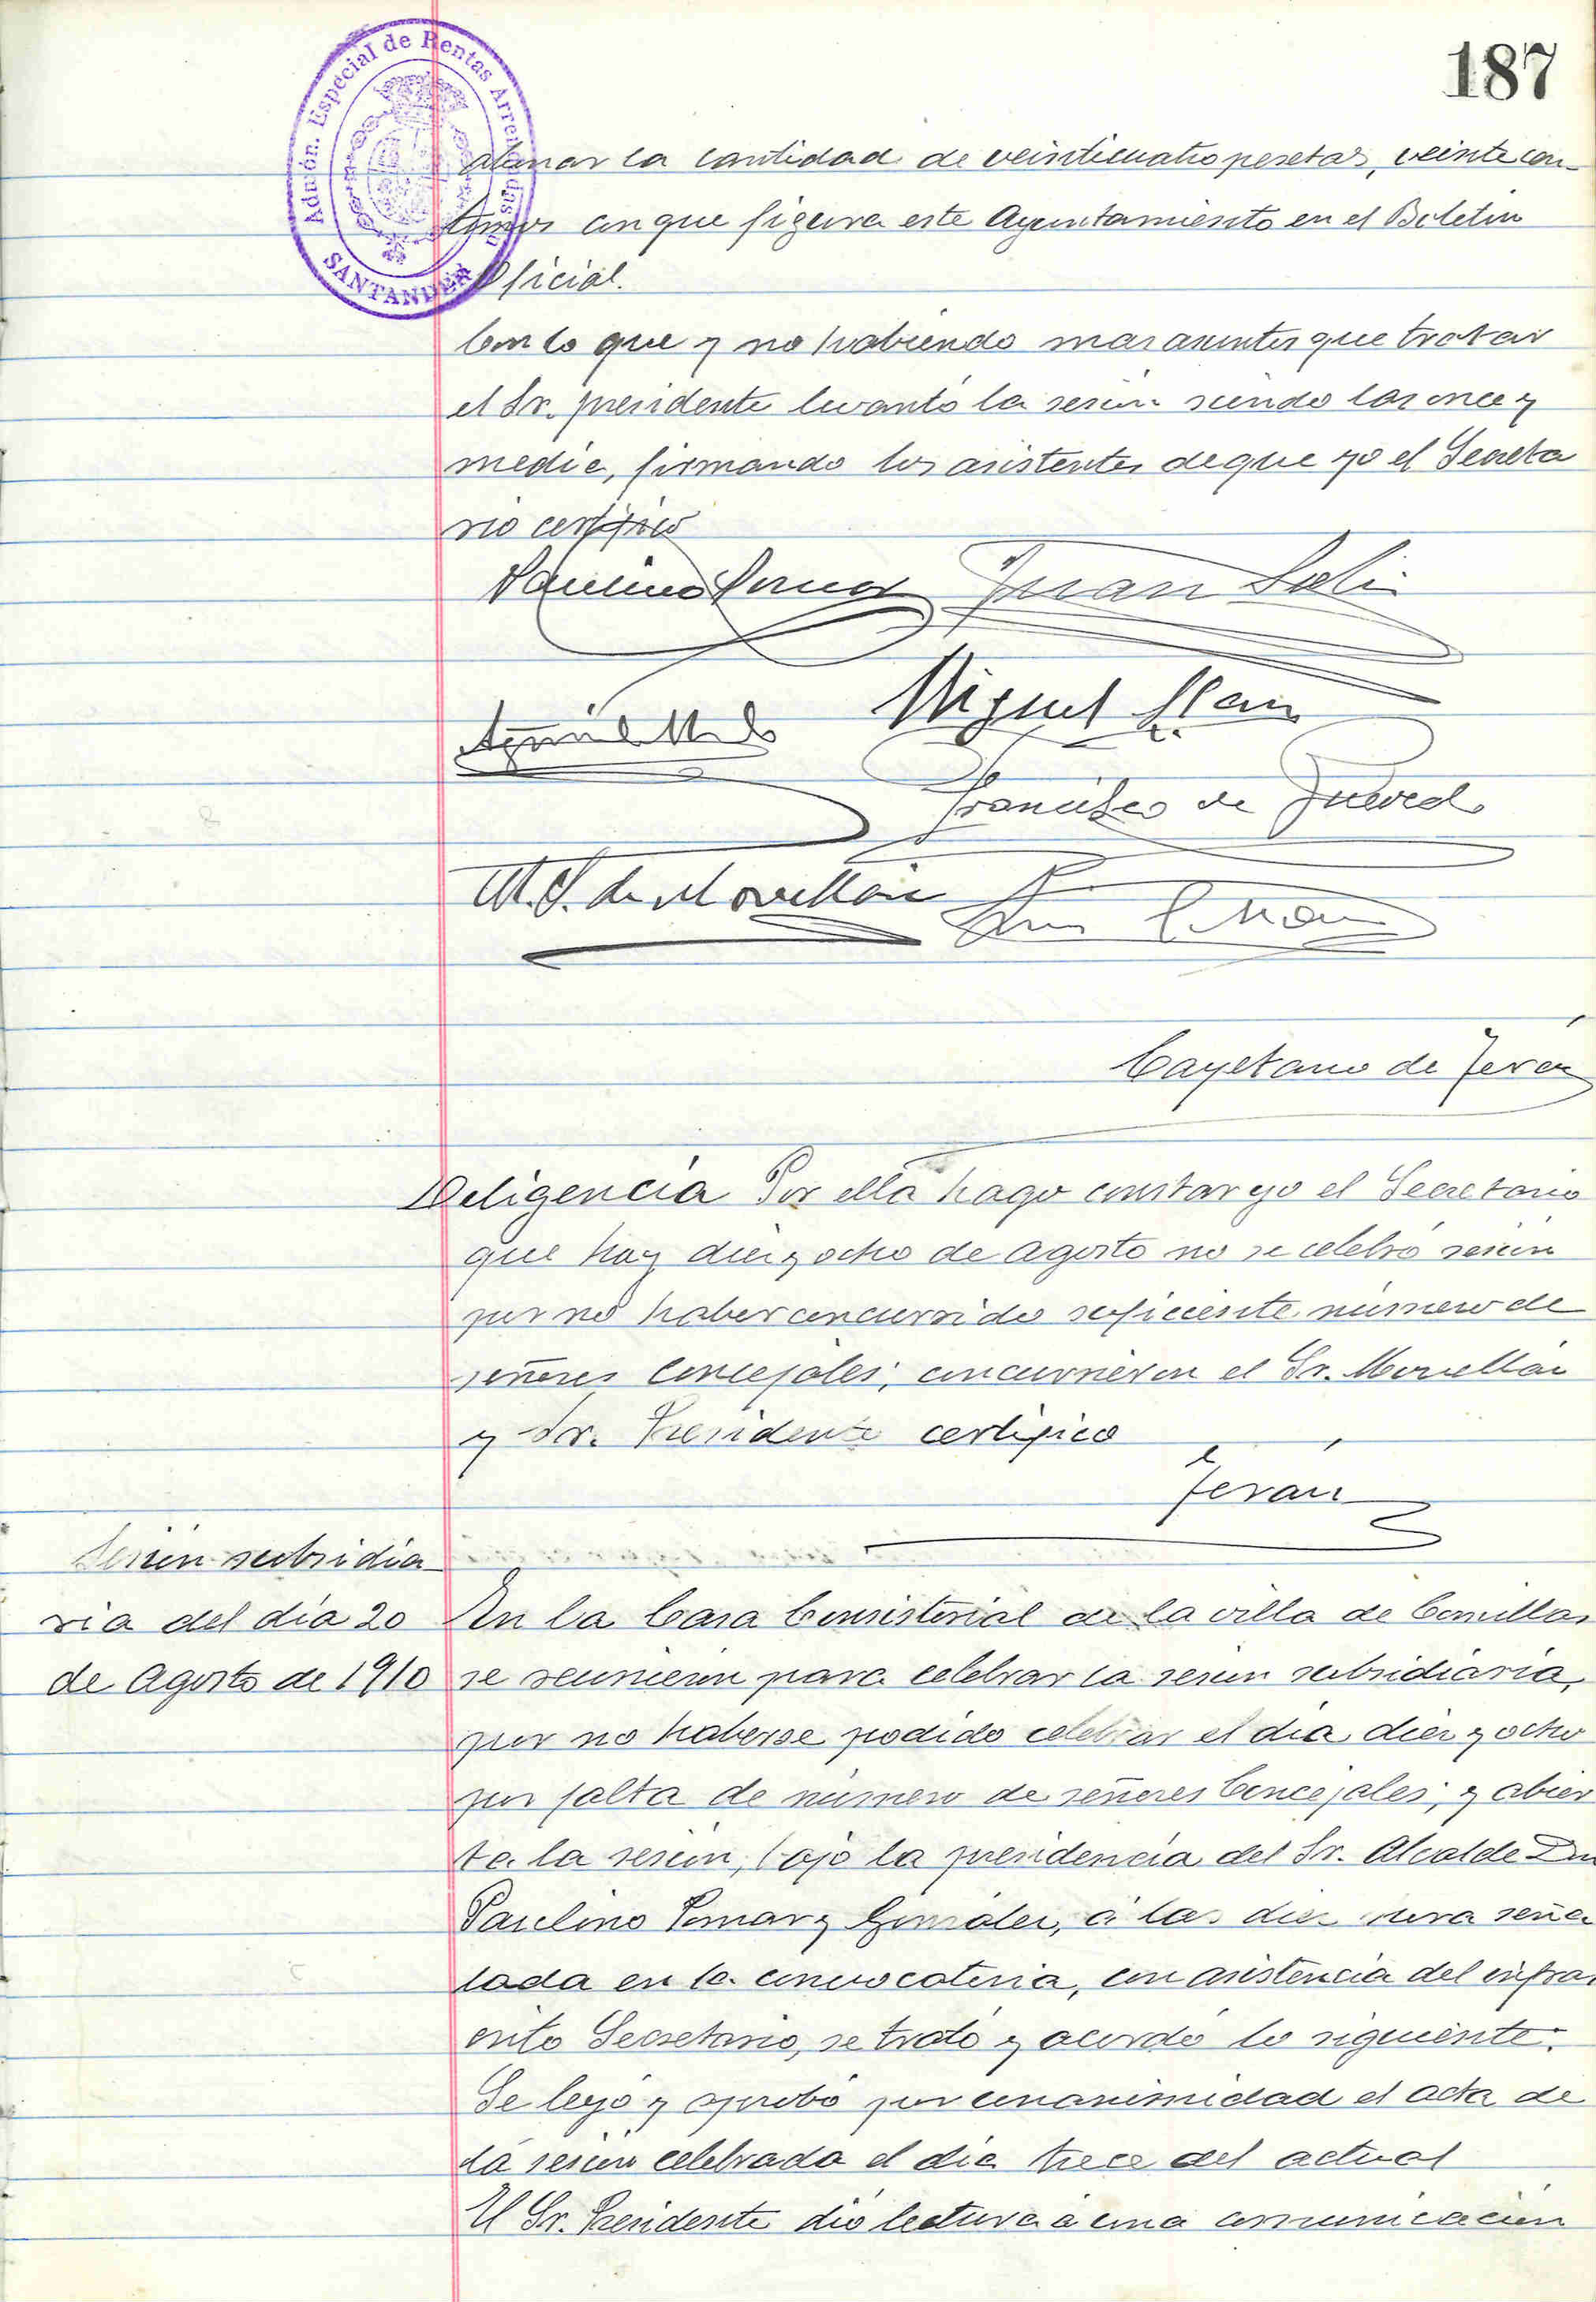 187
Admón. Especial de Rentas Arrendadas
SANTANDER
abonar la cantidad de veinticuatro pesetas, veinte cen-
timos con que figura este Ayuntamiento en el Boletin
Oficial.
Con lo que y no habiendo mas asuntos que tratar
el Sr. presidente levantó la sesión siendo las once y
media, firmando los asistentes de que yo el Secreta
rio certifico
Paulino Pomar Juan Solis
Miguel
Francisco de Quevedo
M. S. de Movellán
Cayetano de Terán
Diligencia Por ella hago constar yo el Secretario
que hoy diez y ocho de Agosto no se celebró sesión
por no haber concurrido suficiente número de
señores Concejales; concurrieron el Sr. Movellán
y Sr. Presidente certifico
Terán
Sesión subsidia
ria del día 20
de Agosto de 1910
En la Casa Consistorial de la villa de Comillas
se reunieron para celebrar la sesión subsidiaria,
por no haberse podido celebrar el día diez y ocho
por falta de número de señores Concejales; y abier
ta la sesión, bajo la presidencia del Sr. Alcalde Don
Paulino Pomar y González, á las diez hora seña
lada en la convocatoria, con asistencia del infras
crito Secretario, se trató y acordó lo siguiente:
Se leyó y aprobó por unanimidad el acta de
la sesión celebrada el día trece del actual
El Sr. Presidente dió lectura á una comunicación